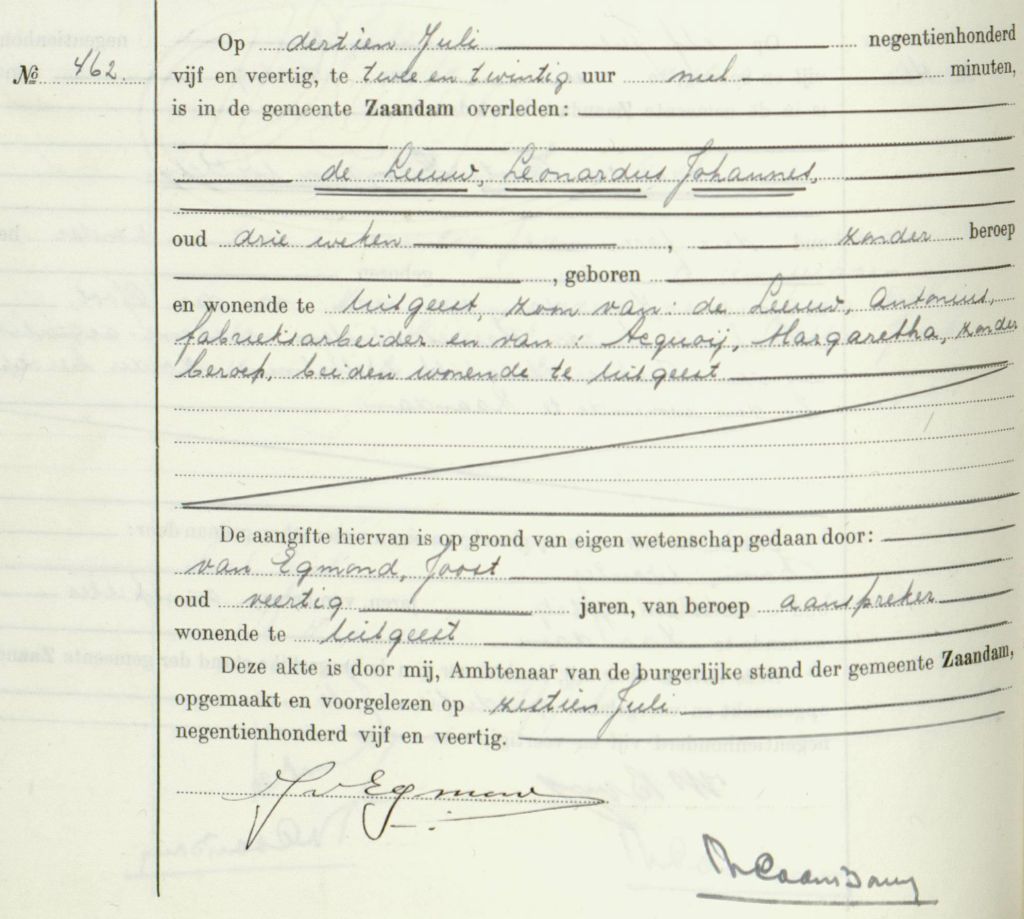 Nº 462.
Op dertien Juli negentienhonderd
vijf en veertig, te twee en twintig uur nul minuten,
is in de gemeente Zaandam overleden:
de Leeuw, Leonardus Johannes,
oud drie weken , zonder beroep
, geboren
en wonende te Uitgeest, zoon van: de Leeuw, Antonius,
fabrieksarbeider en van: Acquoij, Margaretha, zonder
beroep, beiden wonende te Uitgeest
De aangifte hiervan is op grond van eigen wetenschap gedaan door:
van Egmond, Joost
oud veertig jaren, van beroep aanspreker
wonende te Uitgeest
Deze akte is door mij, Ambtenaar van de burgerlijke stand der gemeente Zaandam,
opgemaakt en voorgelezen op zestien Juli
negentienhonderd vijf en veertig.
J v Egmond